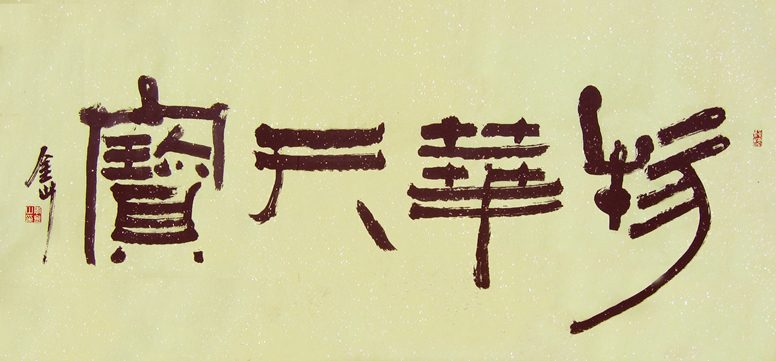 物華天寶
金山